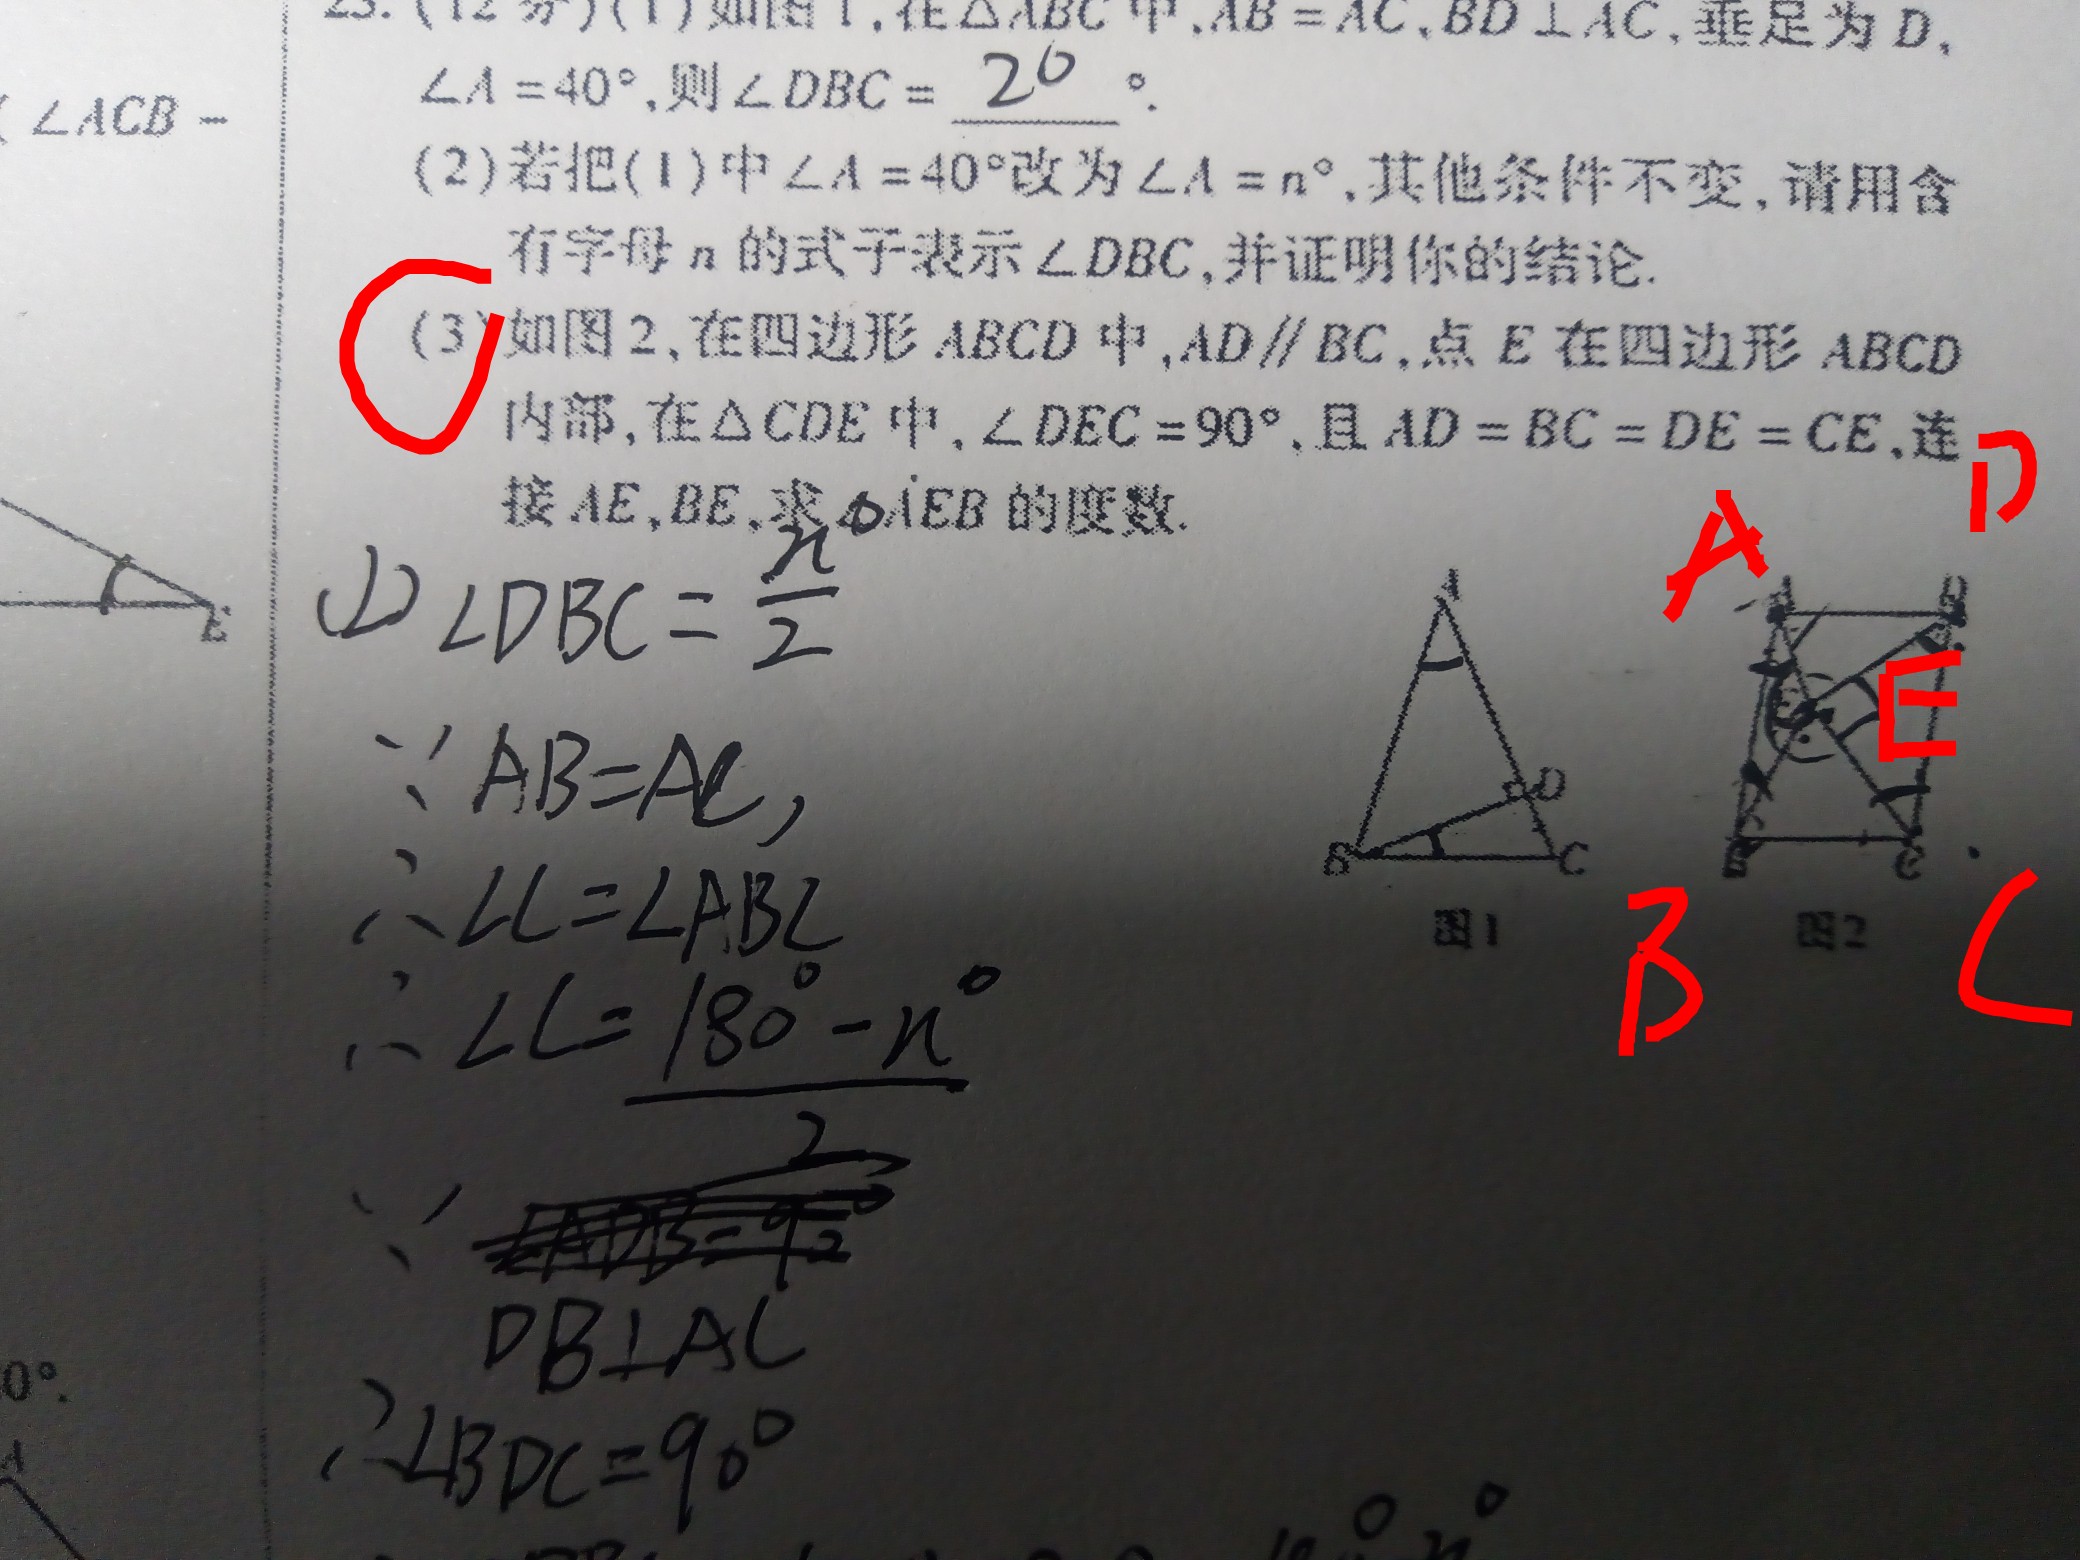 23.(12分)(1)如图1,在△ABC中,AB=AC,BD⊥AC,垂足为D,
∠A=40°,则∠DBC= 20 °.
(2)若把(1)中∠A=40°改为∠A=n°,其他条件不变,请用含
有字母n的式子表示∠DBC,并证明你的结论.
(3)如图2,在四边形ABCD中,AD∥BC,点E在四边形ABCD
内部,在△CDE中,∠DEC=90°,且AD=BC=DE=CE,连
接AE,BE,求∠AEB的度数.
(∠ACB-
E
0°.
A
(2)∠DBC=n°/2
∵AB=AC,
∴∠C=∠ABC
∴∠C=180°-n°/2
∵
DB⊥AC
∴∠BDC=90°
A
D
B
C
图1
A
D
E
B
C
图2
A
D
E
B
C